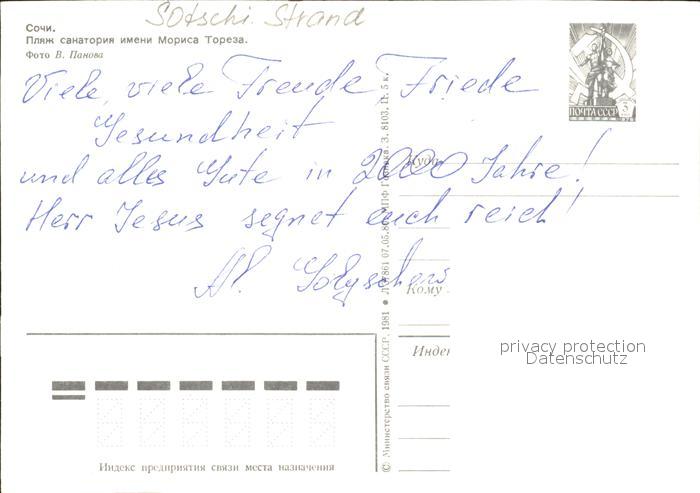 Sotschi. Strand
Сочи.
Пляж санатория имени Мориса Тореза.
Фото В. Панова
ПОЧТА СССР 3
Viele, viele Freude, Friede
Gesundheit
und alles Gute in 2000 Jahre!
Herr Jesus segnet euch reich!
Куда
Кому
Индек
© Министерство связи СССР. 1981 ●
З. 8103. Ц. 5 к.
Индекс предприятия связи места назначения
privacy protection
Datenschutz